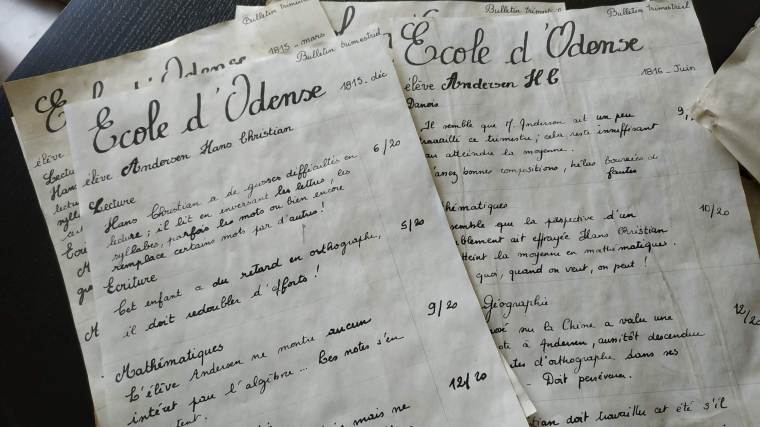 Bulletin trimestriel
1815 - mars
Bulletin trimestriel
Ecole d'Odense
1815 - déc
élève Andersen Hans Christian
Lecture
6/20
Hans Christian a de grosses difficultés en
lecture ; il lit en inversant les lettres, les
syllabes, parfois les mots ou bien encore
remplace certains mots par d'autres !
Ecriture
5/20
Cet enfant a du retard en orthographe,
il doit redoubler d'efforts !
Mathématiques
9/20
L'élève Andersen ne montre aucun
intéret pour l'algèbre... Ces notes s'en
12/20
mais ne
Bulletin trimestriel
Bulletin trimestriel
Ecole d'Odense
élève Andersen H C
1816 - Juin
Danois
9,
Il semble que M. Anderson ait un peu
travaillé ce trimestre ; cela reste insuffisant
atteindre la moyenne.
bonnes compositions, hélas bourrées de
fautes
10/20
semble que la perspective d'un
ait effrayée Hans Christian
la moyenne en mathématiques.
quoi, quand on veut, on peut !
Géographie
12/20
sur la Chine a value une
à Andersen, aussitôt descendue
d'orthographe dans ses
- Doit persévérer.
doit travailler cet été s'il